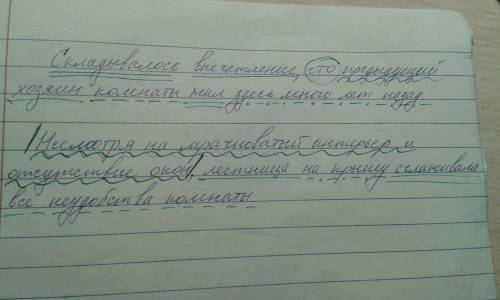 Складывалось впечатление, что предыдущий
хозяин комнаты жил здесь много лет назад.
Несмотря на мрачноватый интерьер и
отсутствие окон, лестница на крышу сглаживала
все неудобства комнаты.